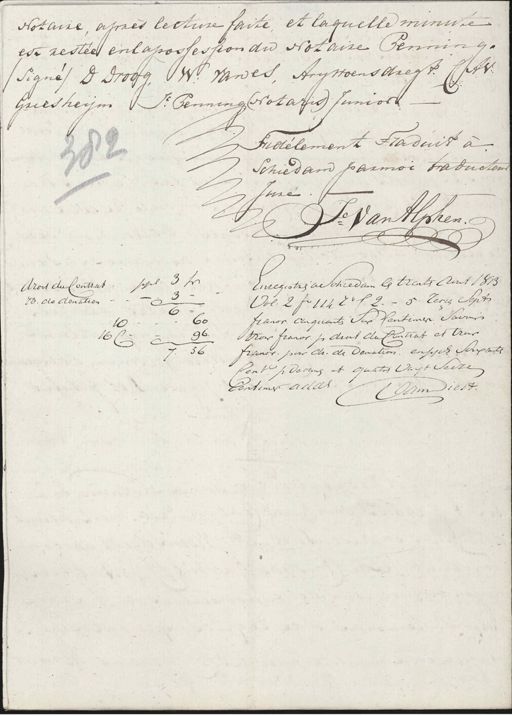 Notaire, après lecture faite, et laquelle minute
est restée en la possession du Notaire Penning.
Signé/ D Droog, W. van Es, Ary Woensdregt. C. A V.
Griesheijm J. Penning (Notaris) Junior. —
382
Fidélement Traduit à
Schiedam par moi traducteur
Juré.
Js. Van Alphen.
droit du Contrat 3 fr
do. de donation - - - 3 -
6 -
10 60
16 96
7 56
Enregistré à Schiedam le trente Avril 1813
Vol 2 fo 114 Vo C 2 - 5 reçu Sept
francs cinquante Six Centimes Savoir
trois francs pr droit de Contrat et trois
francs pour do. de Donation Soixante
Cents pr et quatre Vingt Seize
Centimes addl.